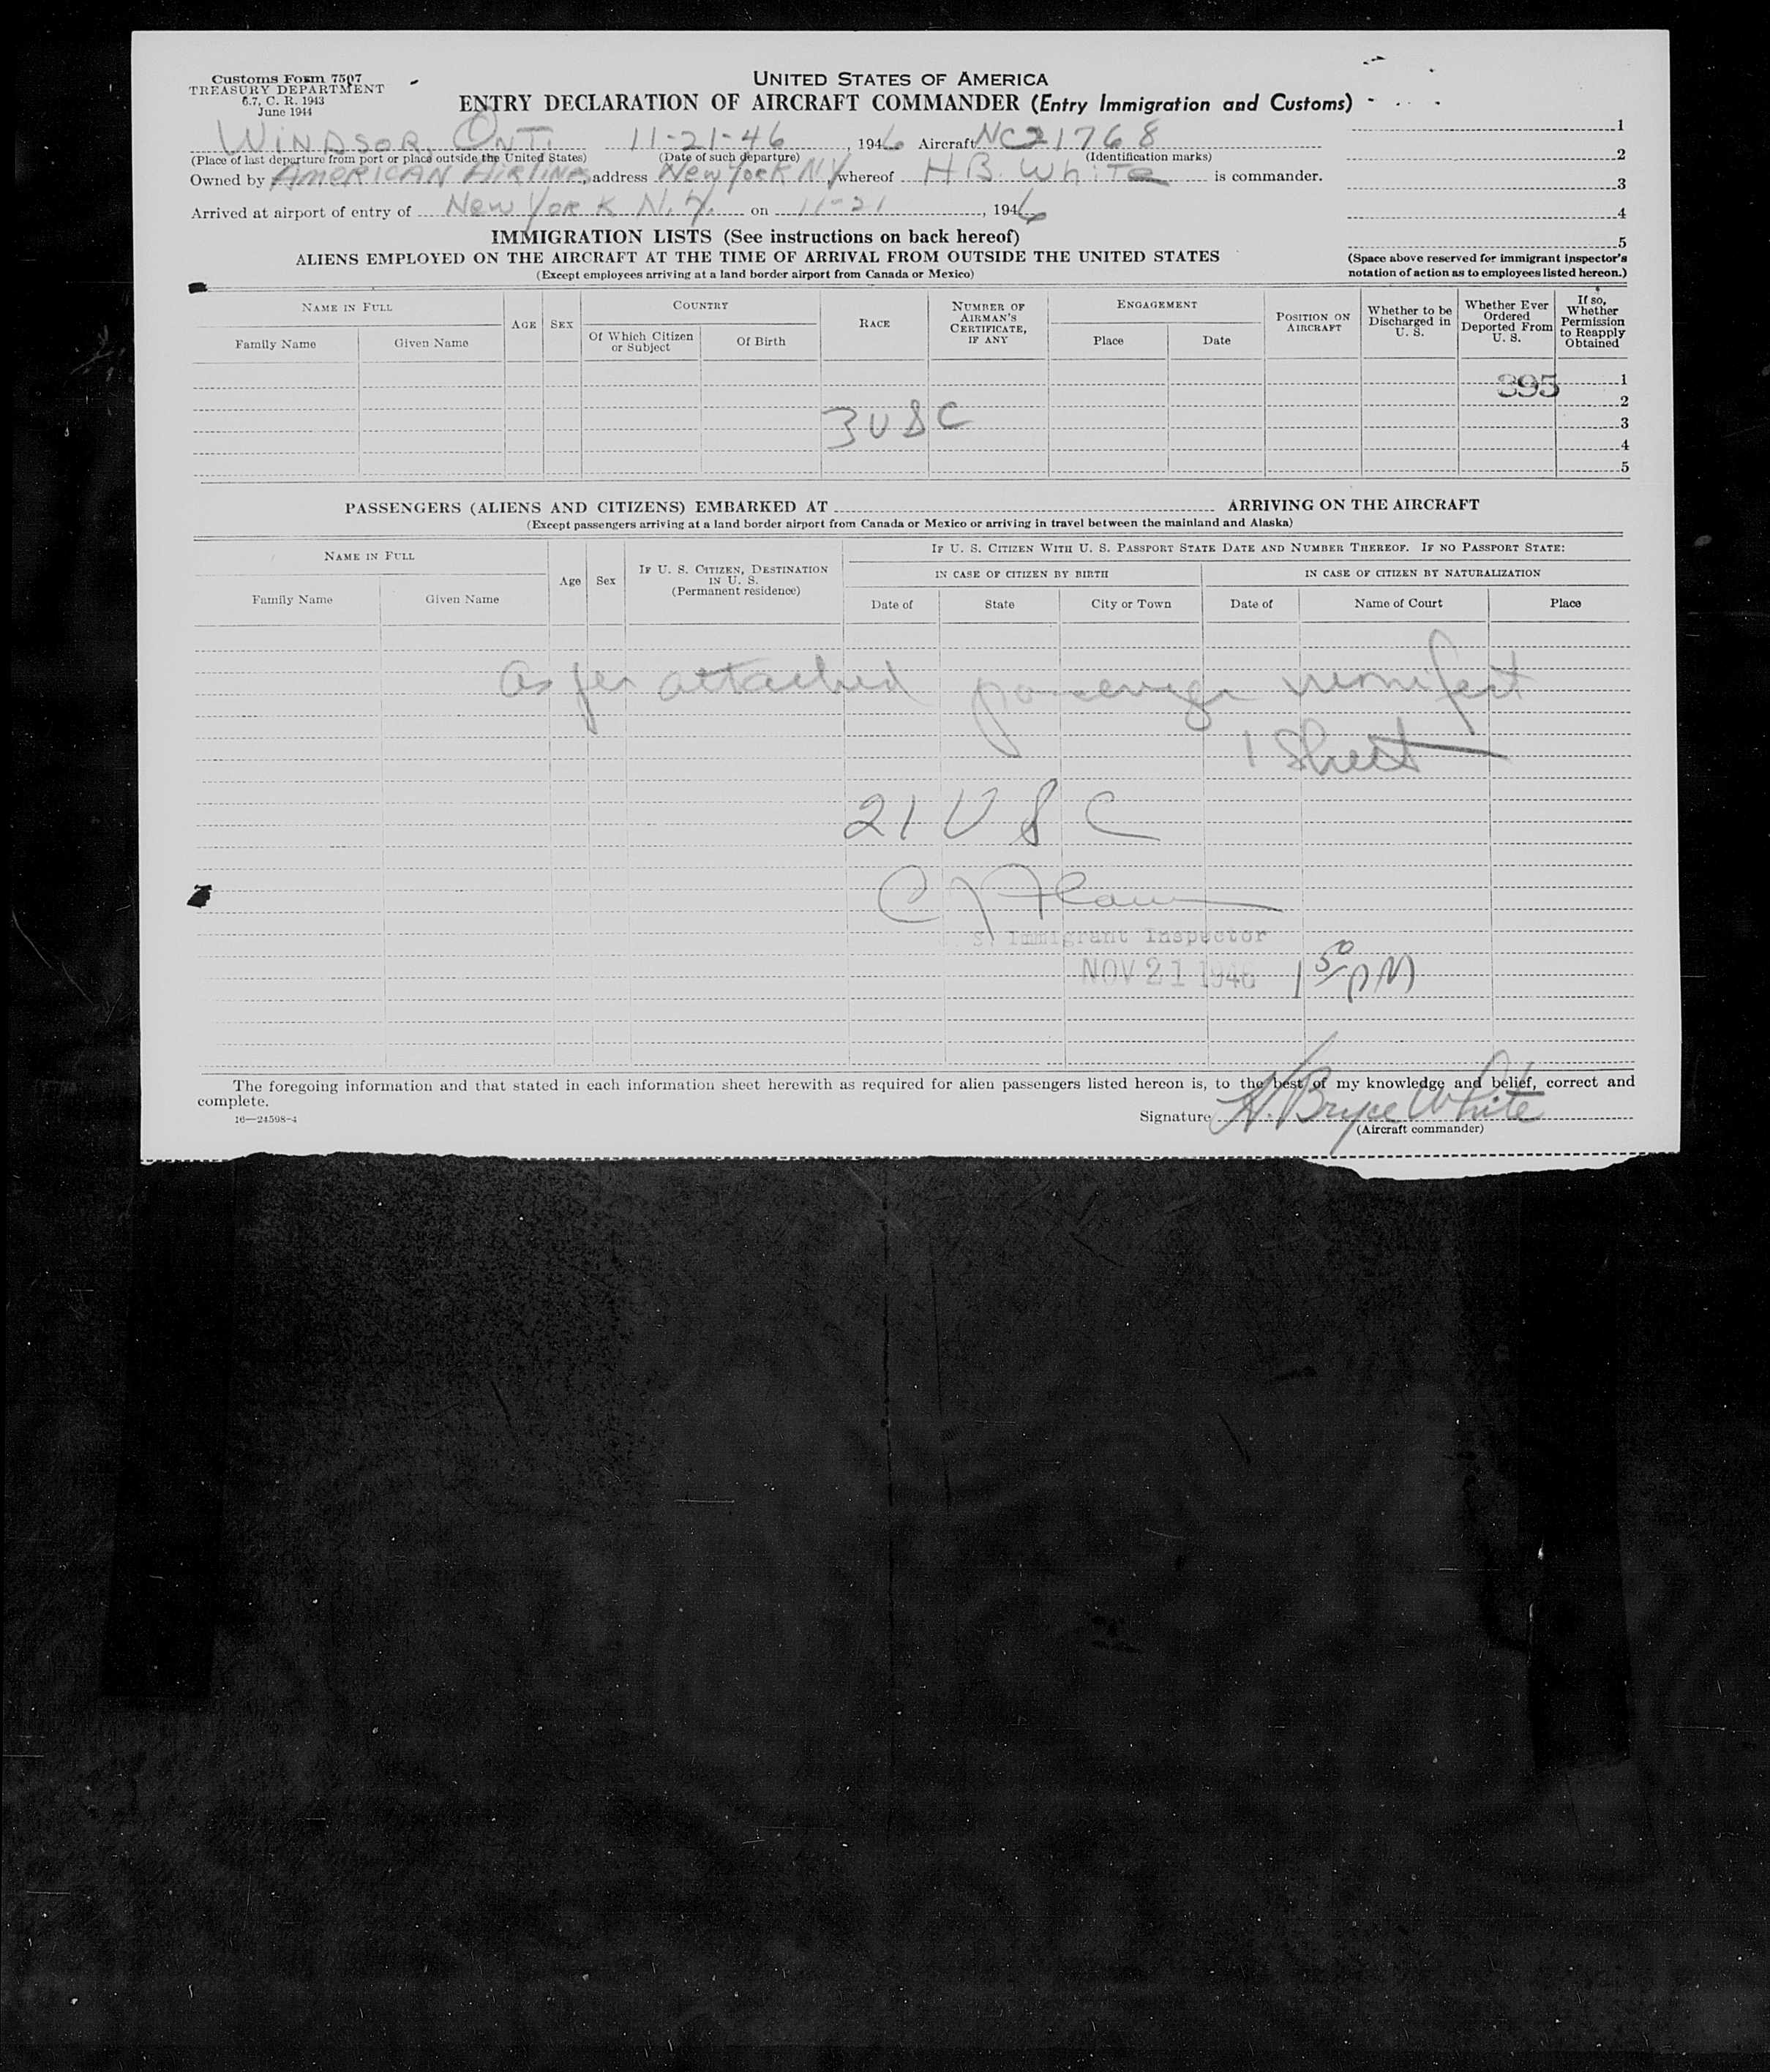 Customs Form 7507
TREASURY DEPARTMENT
6.7, C. R. 1943
June 1944
UNITED STATES OF AMERICA
ENTRY DECLARATION OF AIRCRAFT COMMANDER (Entry Immigration and Customs)
WINDSOR, ONT. 11-21-46, 1946 Aircraft NC21768
(Place of last departure from port or place outside the United States) (Date of such departure) (Identification marks)
Owned by AMERICAN AIRLINES, address New York NY whereof H B. White is commander.
Arrived at airport of entry of New York N.Y. on 11-21, 1946
1
2
3
4
5
(Space above reserved for immigrant inspector's
notation of action as to employees listed hereon.)
IMMIGRATION LISTS (See instructions on back hereof)
ALIENS EMPLOYED ON THE AIRCRAFT AT THE TIME OF ARRIVAL FROM OUTSIDE THE UNITED STATES
(Except employees arriving at a land border airport from Canada or Mexico)
NAME IN FULL
Family Name Given Name
AGE SEX
COUNTRY
Of Which Citizen or Subject Of Birth
RACE
NUMBER OF AIRMAN'S CERTIFICATE, IF ANY
ENGAGEMENT
Place Date
POSITION ON AIRCRAFT
Whether to be Discharged in U. S.
Whether Ever Ordered Deported From U. S.
If so, Whether Permission to Reapply Obtained
395 1
2
3 U S C 3
4
5
PASSENGERS (ALIENS AND CITIZENS) EMBARKED AT ARRIVING ON THE AIRCRAFT
(Except passengers arriving at a land border airport from Canada or Mexico or arriving in travel between the mainland and Alaska)
NAME IN FULL
Family Name Given Name
Age Sex
IF U. S. CITIZEN, DESTINATION IN U. S.
(Permanent residence)
IF U. S. CITIZEN WITH U. S. PASSPORT STATE DATE AND NUMBER THEREOF. IF NO PASSPORT STATE:
IN CASE OF CITIZEN BY BIRTH IN CASE OF CITIZEN BY NATURALIZATION
Date of State City or Town Date of Name of Court Place
As per attached passenger manifest
1 Sheet
21 U S C
S. Immigrant Inspector
NOV 21 1946 1 50 PM
The foregoing information and that stated in each information sheet herewith as required for alien passengers listed hereon is, to the best of my knowledge and belief, correct and
complete.
16—24598-4
Signature H. Bryce White
(Aircraft commander)